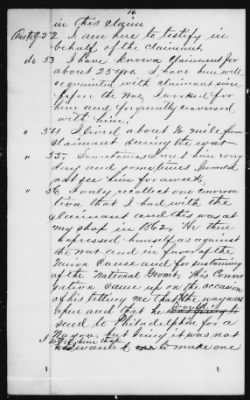 16
in this claim
Ans to Q 52 I am here to testify in
behalf of the claimant
do 53 I have known Claimant for
about 25 yrs. I have been well
acquainted with claimant since
before the War, I worked for
him and frequently conversed
with him.
" 54 I lived about ½ mile from
claimant during the war
" 55. Sometimes I met him every
day and sometimes I would
not see him for a week
" 56 I only recollect one conversa
tion that I had with the
claimant and this was at
my shop in 1862. He then
expressed himself as against
the war and in favor of the
Union Cause and for sustaining
of the National Govmt. This Conver
sation came up on the occasion
of his telling me that the way was
open and that he could
send to Philadelphia for a
Wagon, but being it was not
I told him that
wanted to make one